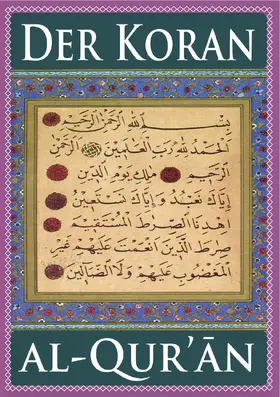 DER KORAN
بسم الله الرحمن الرحيم
الحمد لله رب العلمين الرحمن
الرحيم ملك يوم الدين
اياك نعبد واياك نستعين
اهدنا الصرط المستقيم
صراط الذين انعمت عليهم غير
المغضوب عليهم ولا الضالين
AL-QUR’ĀN